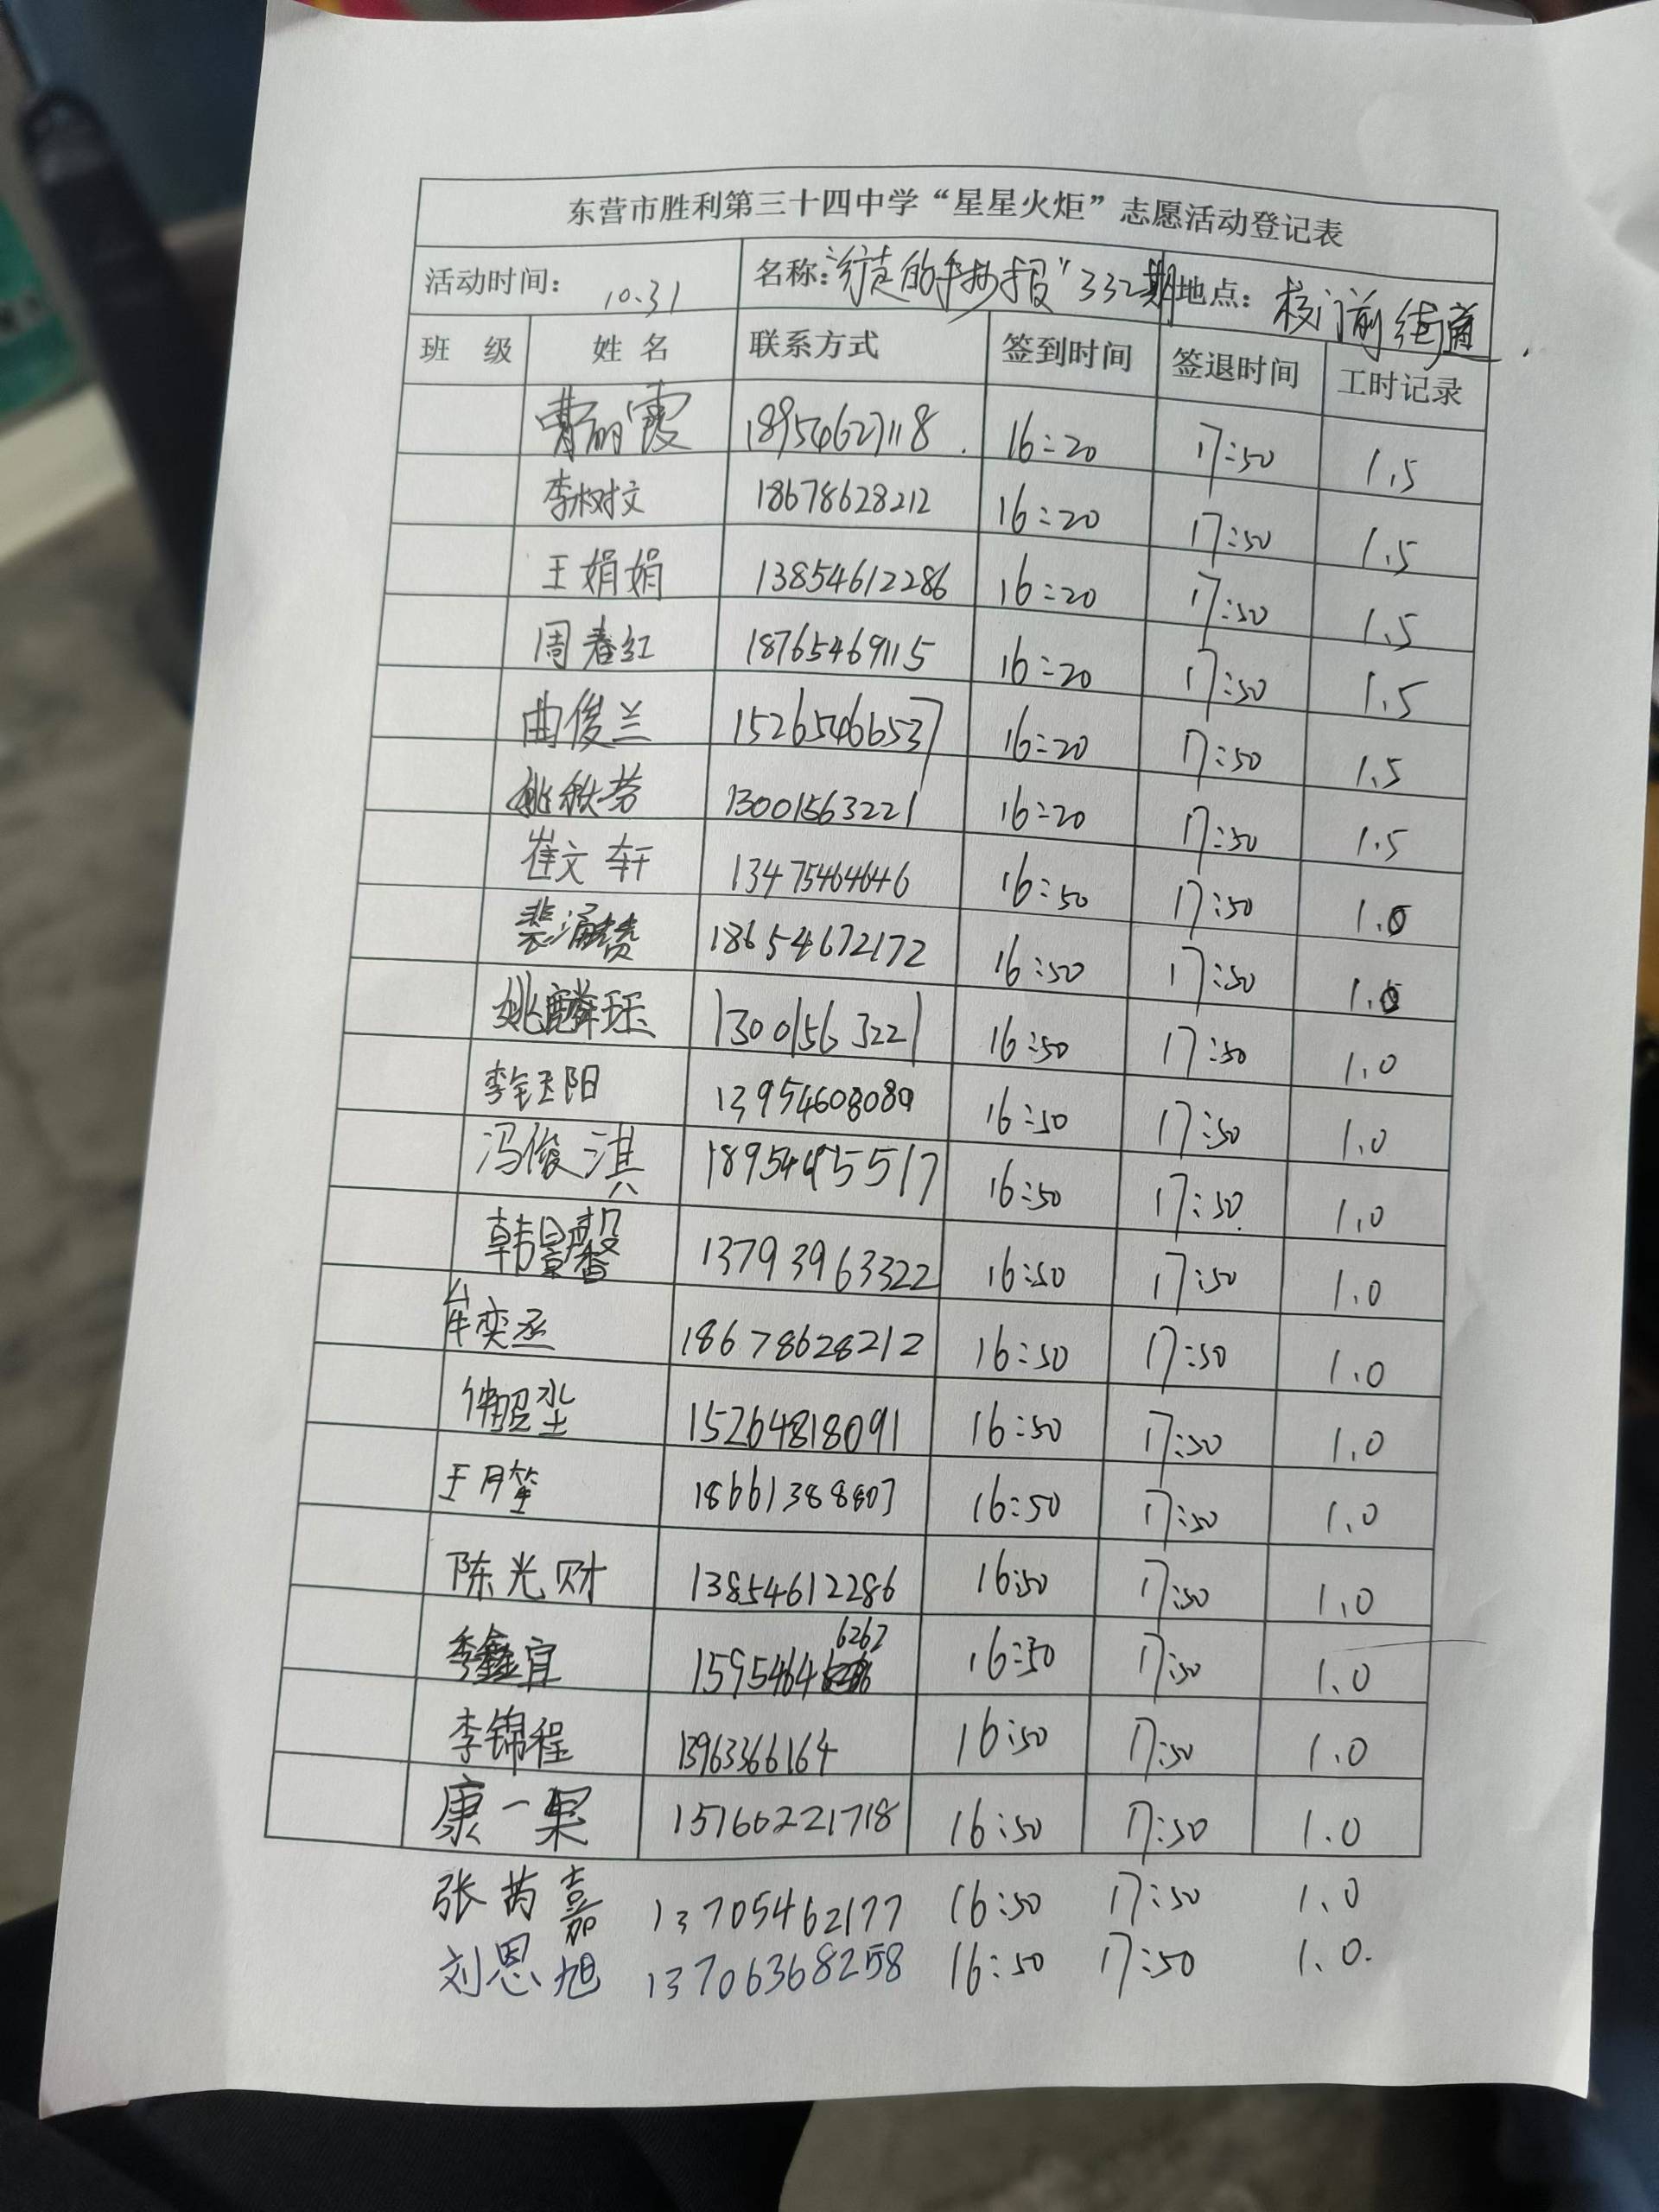 东营市胜利第三十四中学“星星火炬”志愿活动登记表
活动时间: 10.31 名称:“行走的手抄报”332期 地点: 校门前街道
班 级 姓 名 联系方式 签到时间 签退时间 工时记录
曹丽霞 18954627118 16:20 17:50 1.5
李树文 18678628212 16:20 17:50 1.5
王娟娟 13854612286 16:20 17:50 1.5
周春红 18765469115 16:20 17:50 1.5
曲俊兰 15265466537 16:20 17:50 1.5
姚秩芳 13001563221 16:20 17:50 1.5
崔文轩 13475464646 16:50 17:50 1.0
裴涌赞 18654672172 16:50 17:50 1.0
姚麟珏 13001563221 16:50 17:50 1.0
李钰阳 13954608080 16:50 17:50 1.0
冯俊淇 16:50 17:50 1.0
韩景馨 13793963322 16:50 17:50 1.0
牟奕丞 18678628212 16:50 17:50 1.0
15264818091 16:50 17:50 1.0
王月笙 18661388807 16:50 17:50 1.0
陈光财 13854612286 16:50 17:50 1.0
李鑫宜 15954646262 16:50 17:50 1.0
李锦程 13963366164 16:50 17:50 1.0
康一果 15160221718 16:50 17:50 1.0
张芮嘉 13705462177 16:50 17:50 1.0
刘恩旭 13706368258 16:50 17:50 1.0.